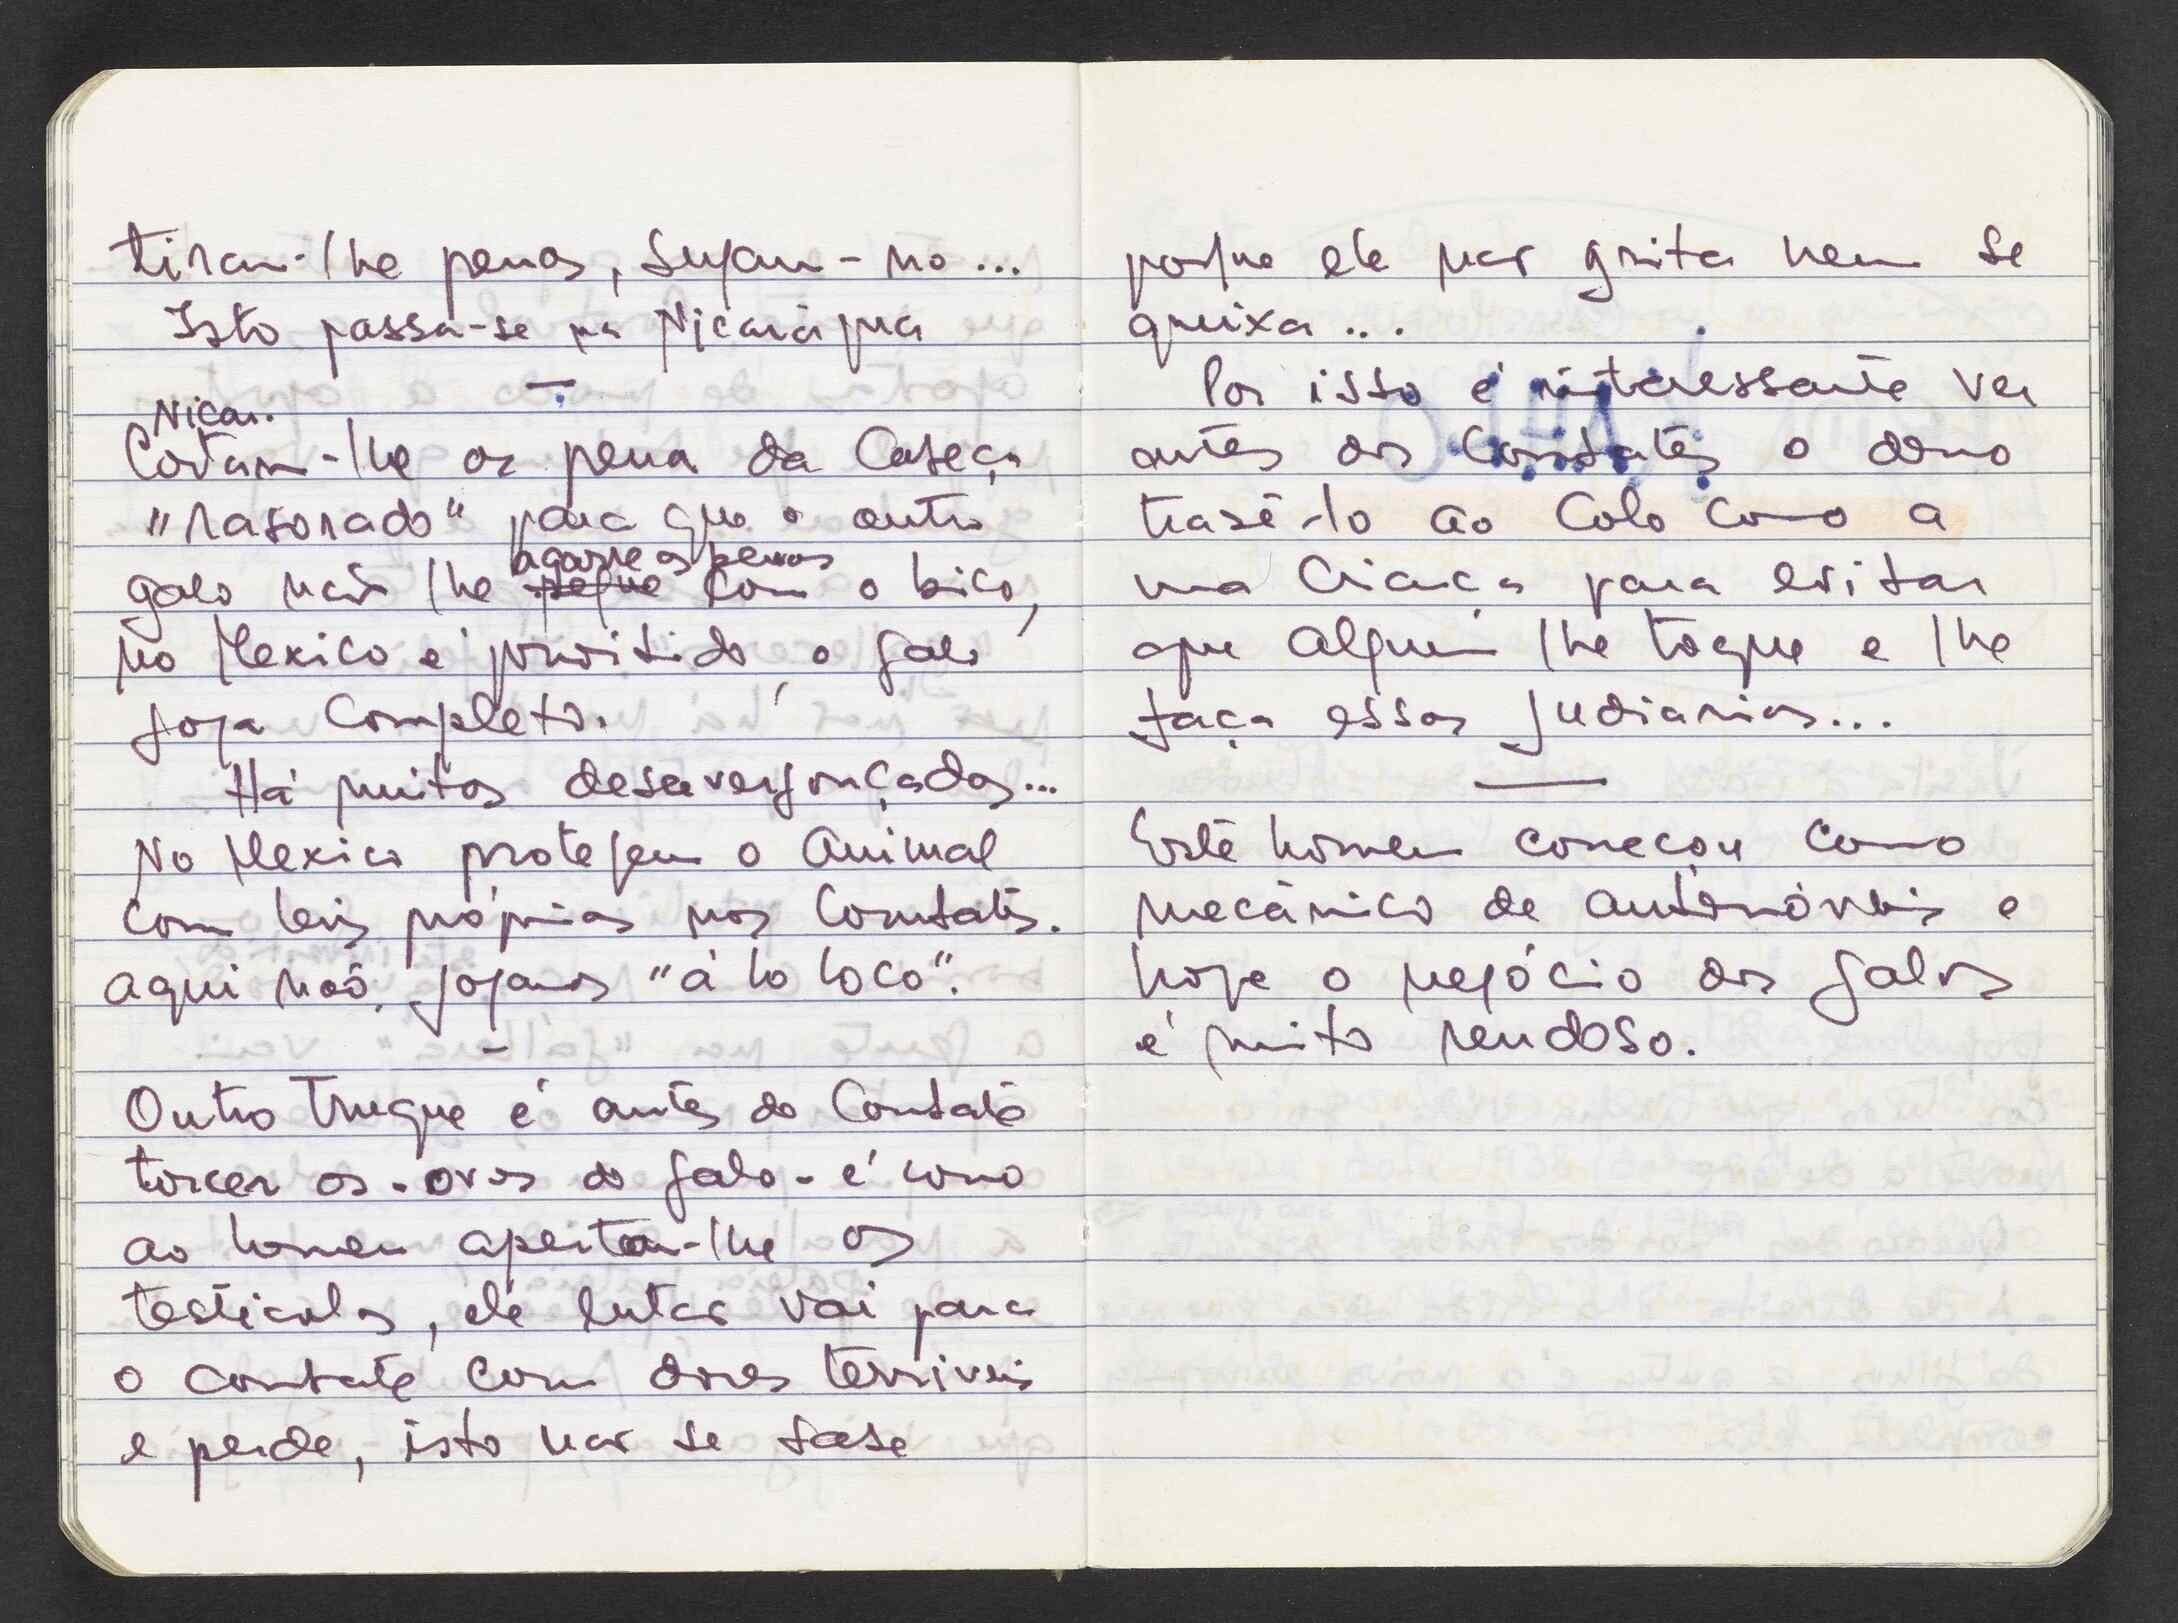 tiram-lhe penas, sujam-no...
Isto passa-se na Nicarágua
Nicar.
Cortam-lhe as pena da Cabeça
"rasorado" para que o outro
agarre as penas
galo não lhe pegue com o bico,
no Mexico é proibido, o galo
joga Completo.
Há muitos desavergonçados...
No Mexico protegem o Animal
com leis próprias nos Combates.
aqui não, jogamos "á lo loco".
Outro Truque é antes do Combate
torcer os ovos do galo - é como
ao homem apertar-lhe os
testiculos, ele lutar vai para
o combate com dores terriveis
e perde, isto não se sabe
porque ele não grita nem se
queixa...
Por isso é interessante ver
antes dos Combates o dono
trasê-lo ao Colo como a
uma Criança para evitar
que alguem lhe toque e lhe
faça essas judiarias...
Este homem começou como
mecânico de automóveis e
hoje o negócio dos galos
é muito rendoso.